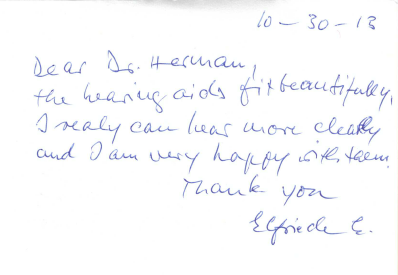 10-30-13
Dear Dr. Herman,
the hearing aids fit beautifully,
I realy can hear more clearly
and I am very happy with them.
Thank you
Elfriede E.